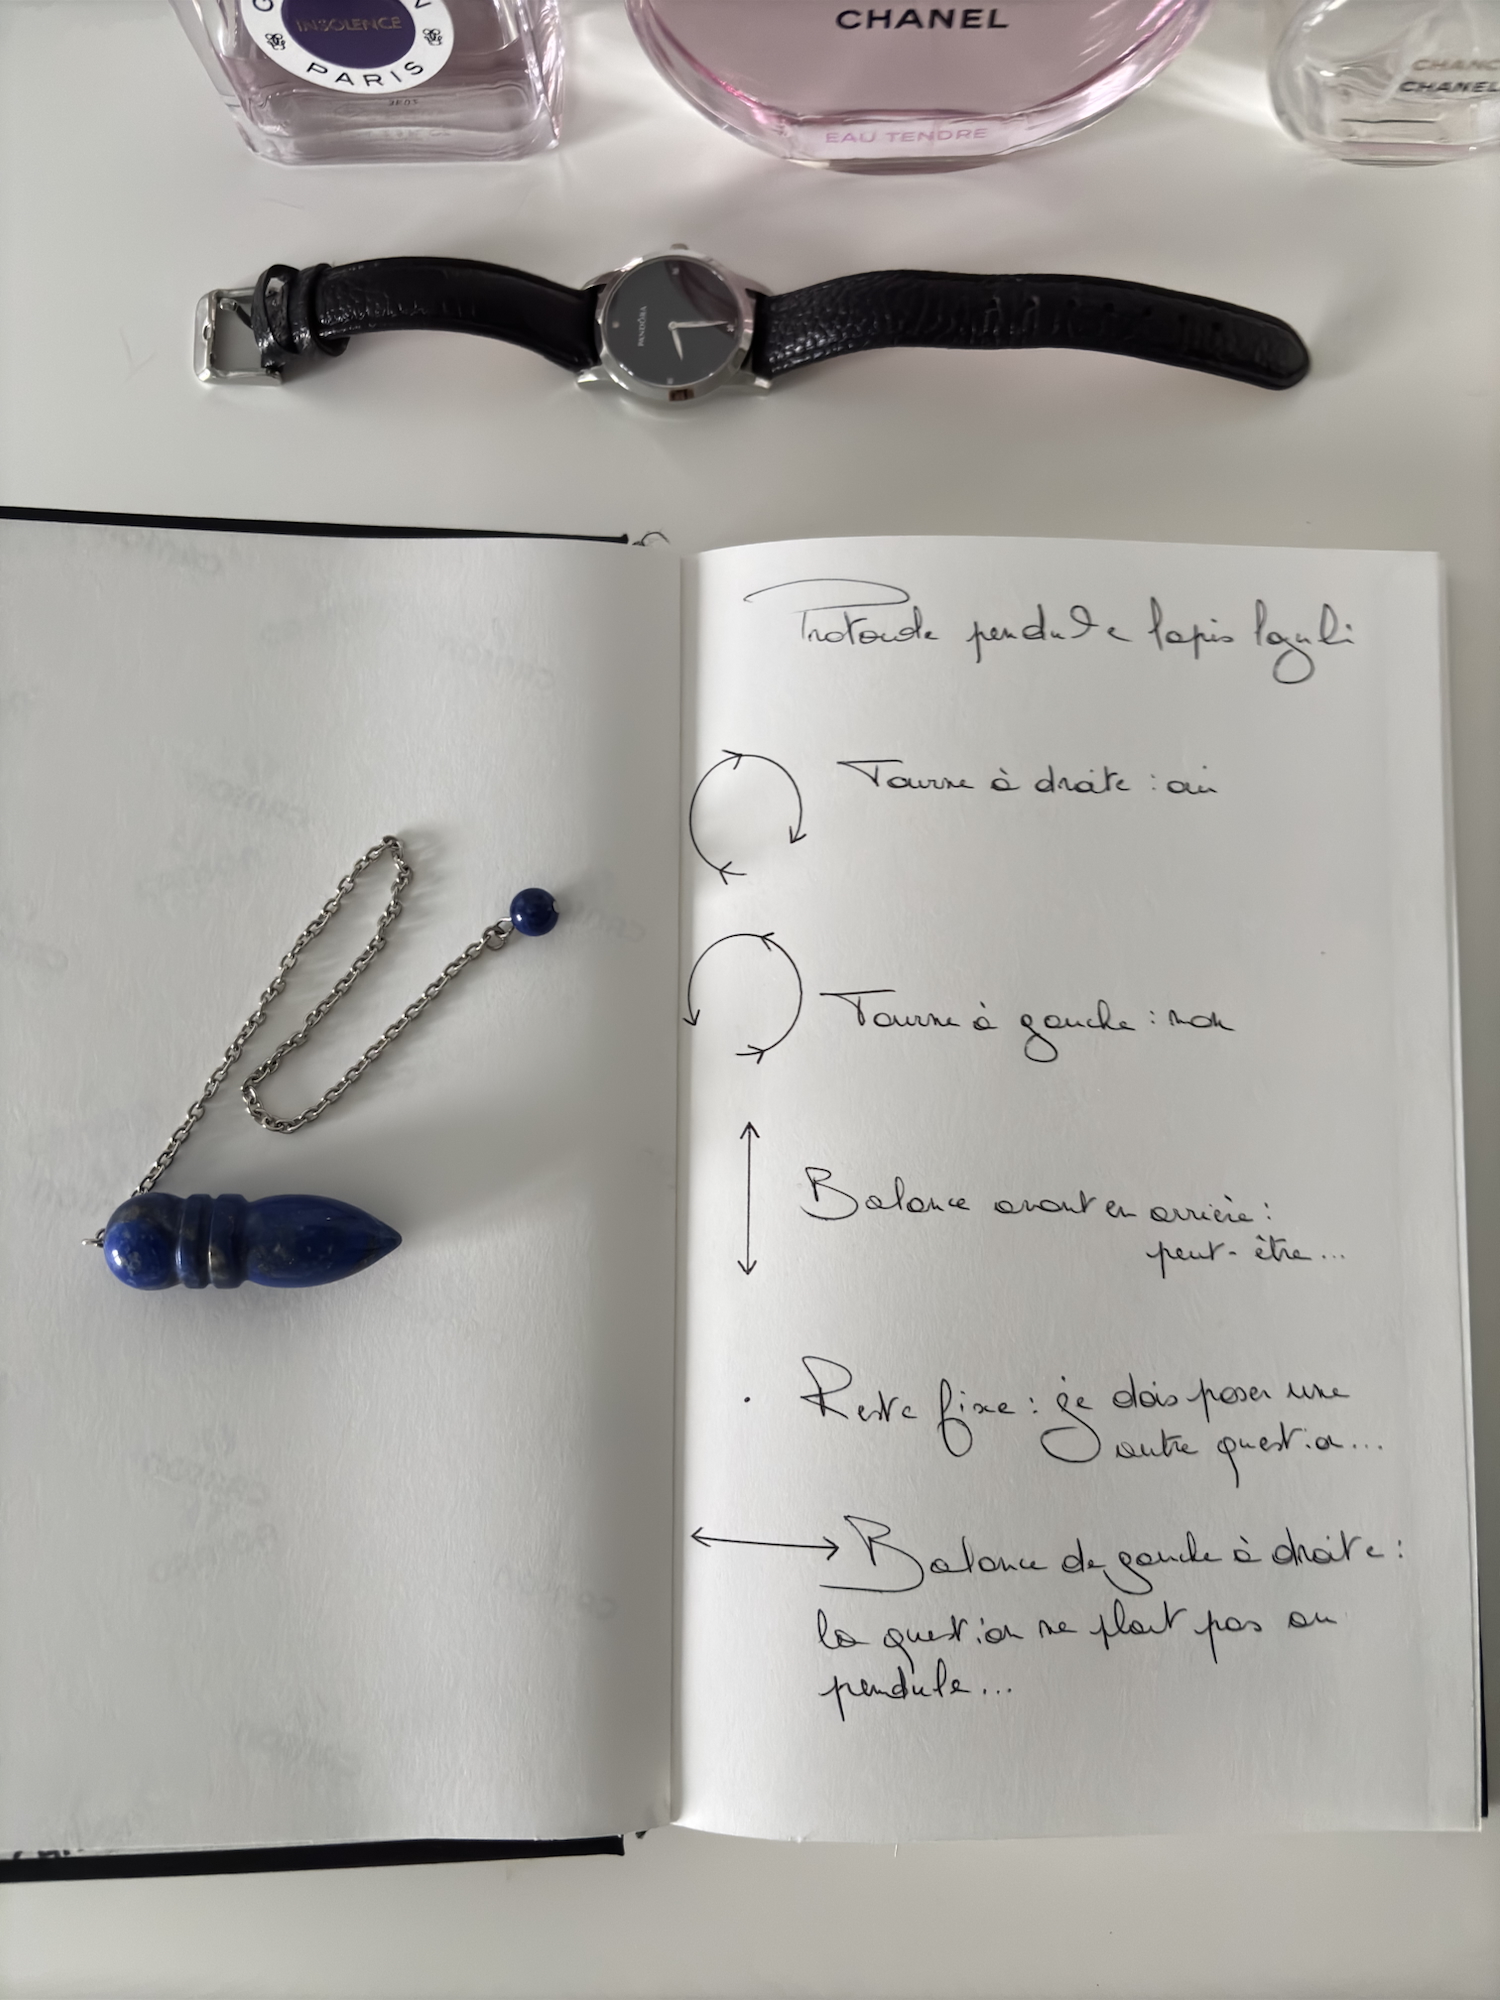 INSOLENCE
PARIS
CHANEL
EAU TENDRE
CHANC
CHANEL
PANDORA
Protocole pendule lapis lazuli
Tourne à droite : oui
Tourne à gauche : non
Balance avant en arrière :
peut-être...
Reste fixe : je dois poser une
autre question...
Balance de gauche à droite :
la question ne plaît pas au
pendule...